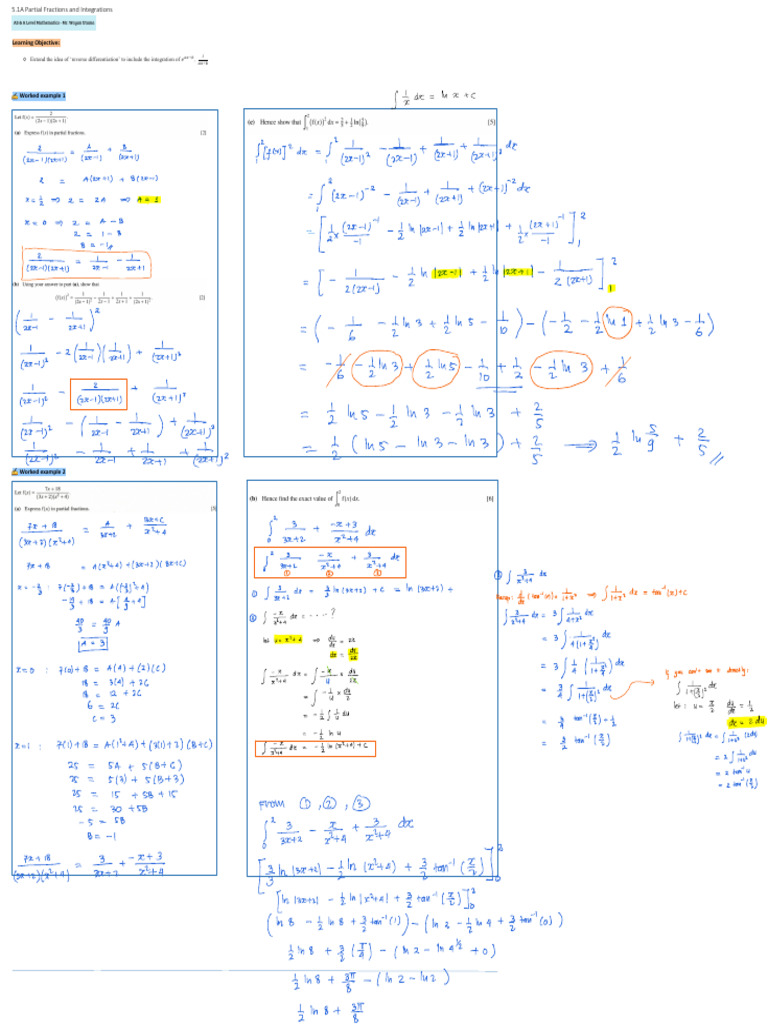 5.1A Partial Fractions and Integrations
AS & A Level Mathematics - Mr. Wngan Diama
Learning Objective:
o Extend the idea of 'reverse differentiation' to include the integration of e^(ax+b), 1/(ax+b)
∫ 1/x dx = ln x + C
Worked example 1
Let f(x) = 2/((2x−1)(2x+1)).
(a) Express f(x) in partial fractions. [2]
2/((2x−1)(2x+1)) = A/(2x−1) + B/(2x+1)
2 = A(2x+1) + B(2x−1)
x = 1/2 ⇒ 2 = 2A ⇒ A = 1
x = 0 ⇒ 2 = A − B
2 = 1 − B
B = −1
2/((2x−1)(2x+1)) = 1/(2x−1) − 1/(2x+1)
(b) Using your answer to part (a), show that
(f(x))² = 1/(2x−1)² − 1/(2x−1) + 1/(2x+1) + 1/(2x+1)². [2]
(1/(2x−1) − 1/(2x+1))²
1/(2x−1)² − 2(1/(2x−1))(1/(2x+1)) + 1/(2x+1)²
1/(2x−1)² − 2/((2x−1)(2x+1)) + 1/(2x+1)²
1/(2x−1)² − (1/(2x−1) − 1/(2x+1)) + 1/(2x+1)²
1/(2x−1)² − 1/(2x−1) + 1/(2x+1) + 1/(2x+1)²
(c) Hence show that ∫₁² (f(x))² dx = 2/5 + 1/2 ln(5/9). [5]
∫₁² [f(x)]² dx = ∫₁² 1/(2x−1)² − 1/(2x−1) + 1/(2x+1) + 1/(2x+1)² dx
= ∫₁² (2x−1)⁻² − 1/(2x−1) + 1/(2x+1) + (2x+1)⁻² dx
= [1/2 × (2x−1)⁻¹/−1 − 1/2 ln|2x−1| + 1/2 ln|2x+1| + 1/2 × (2x+1)⁻¹/−1]₁²
= [− 1/(2(2x−1)) − 1/2 ln|2x−1| + 1/2 ln|2x+1| − 1/(2(2x+1))]₁²
= (− 1/6 − 1/2 ln 3 + 1/2 ln 5 − 1/10) − (− 1/2 − 1/2 ln 1 + 1/2 ln 3 − 1/6)
= − 1/6 − 1/2 ln 3 + 1/2 ln 5 − 1/10 + 1/2 − 1/2 ln 3 + 1/6
= 1/2 ln 5 − 1/2 ln 3 − 1/2 ln 3 + 2/5
= 1/2 (ln 5 − ln 3 − ln 3) + 2/5 ⇒ 1/2 ln 5/9 + 2/5
Worked example 2
Let f(x) = (7x+18)/((3x+2)(x²+4)).
(a) Express f(x) in partial fractions. [5]
(7x+18)/((3x+2)(x²+4)) = A/(3x+2) + (Bx+C)/(x²+4)
7x + 18 = A(x²+4) + (3x+2)(Bx+C)
x = −2/3 : 7(−2/3) + 18 = A((−2/3)² + 4)
−14/3 + 18 = A[4/9 + 4]
40/3 = 40/9 A
A = 3
x = 0 : 7(0) + 18 = A(4) + (2)(C)
18 = 3(4) + 2C
18 = 12 + 2C
6 = 2C
C = 3
x = 1 : 7(1) + 18 = A(1²+4) + (3(1)+2)(B+C)
25 = 5A + 5(B+C)
25 = 5(3) + 5(B+3)
25 = 15 + 5B + 15
25 = 30 + 5B
−5 = 5B
B = −1
(7x+18)/((3x+2)(x²+4)) = 3/(3x+2) + (−x+3)/(x²+4)
(b) Hence find the exact value of ∫₀² f(x) dx. [6]
∫₀² 3/(3x+2) + (−x+3)/(x²+4) dx
∫₀² 3/(3x+2) − x/(x²+4) + 3/(x²+4) dx
① ② ③
① ∫ 3/(3x+2) dx = 3/3 ln(3x+2) + C = ln(3x+2) +
② ∫ −x/(x²+4) dx = ....?
let u = x²+4 ⇒ du/dx = 2x
dx = du/2x
∫ −x/(x²+4) dx = ∫ −x/u × du/2x
= ∫ −1/u × du/2
= −1/2 ∫ 1/u du
= −1/2 ln u
∫ −x/(x²+4) dx = −1/2 ln(x²+4) + C
③ ∫ 3/(x²+4) dx
∫ 1/(1+x²) dx = tan⁻¹(x) + C
∫ 3/(x²+4) dx = 3 ∫ 1/(x²+4) dx
= 3 ∫ 1/(4(1+x²/4)) dx
= 3 ∫ 1/4 (1/(1+x²/4)) dx
= 3/4 ∫ 1/(1+(x/2)²) dx
= 3/4 tan⁻¹(x/2) ÷ 1/2
= 3/2 tan⁻¹(x/2)
If you can't see it directly:
∫ 1/(1+(x/2)²) dx
let : u = x/2 du/dx = 1/2
dx = 2 du
∫ 1/(1+(x/2)²) dx = ∫ 1/(1+u²) (2du)
= 2 ∫ 1/(1+u²) du
= 2 tan⁻¹ u
= 2 tan⁻¹(x/2)
From ①, ②, ③
∫₀² 3/(3x+2) − x/(x²+4) + 3/(x²+4) dx
[3/3 ln|3x+2| − 1/2 ln|x²+4| + 3/2 tan⁻¹(x/2)]₀²
[ln|3x+2| − 1/2 ln|x²+4| + 3/2 tan⁻¹(x/2)]₀²
(ln 8 − 1/2 ln 8 + 3/2 tan⁻¹(1)) − (ln 2 − 1/2 ln 4 + 3/2 tan⁻¹(0))
1/2 ln 8 + 3/2 (π/4) − (ln 2 − ln 4^(1/2) + 0)
1/2 ln 8 + 3π/8 − (ln 2 − ln 2)
1/2 ln 8 + 3π/8